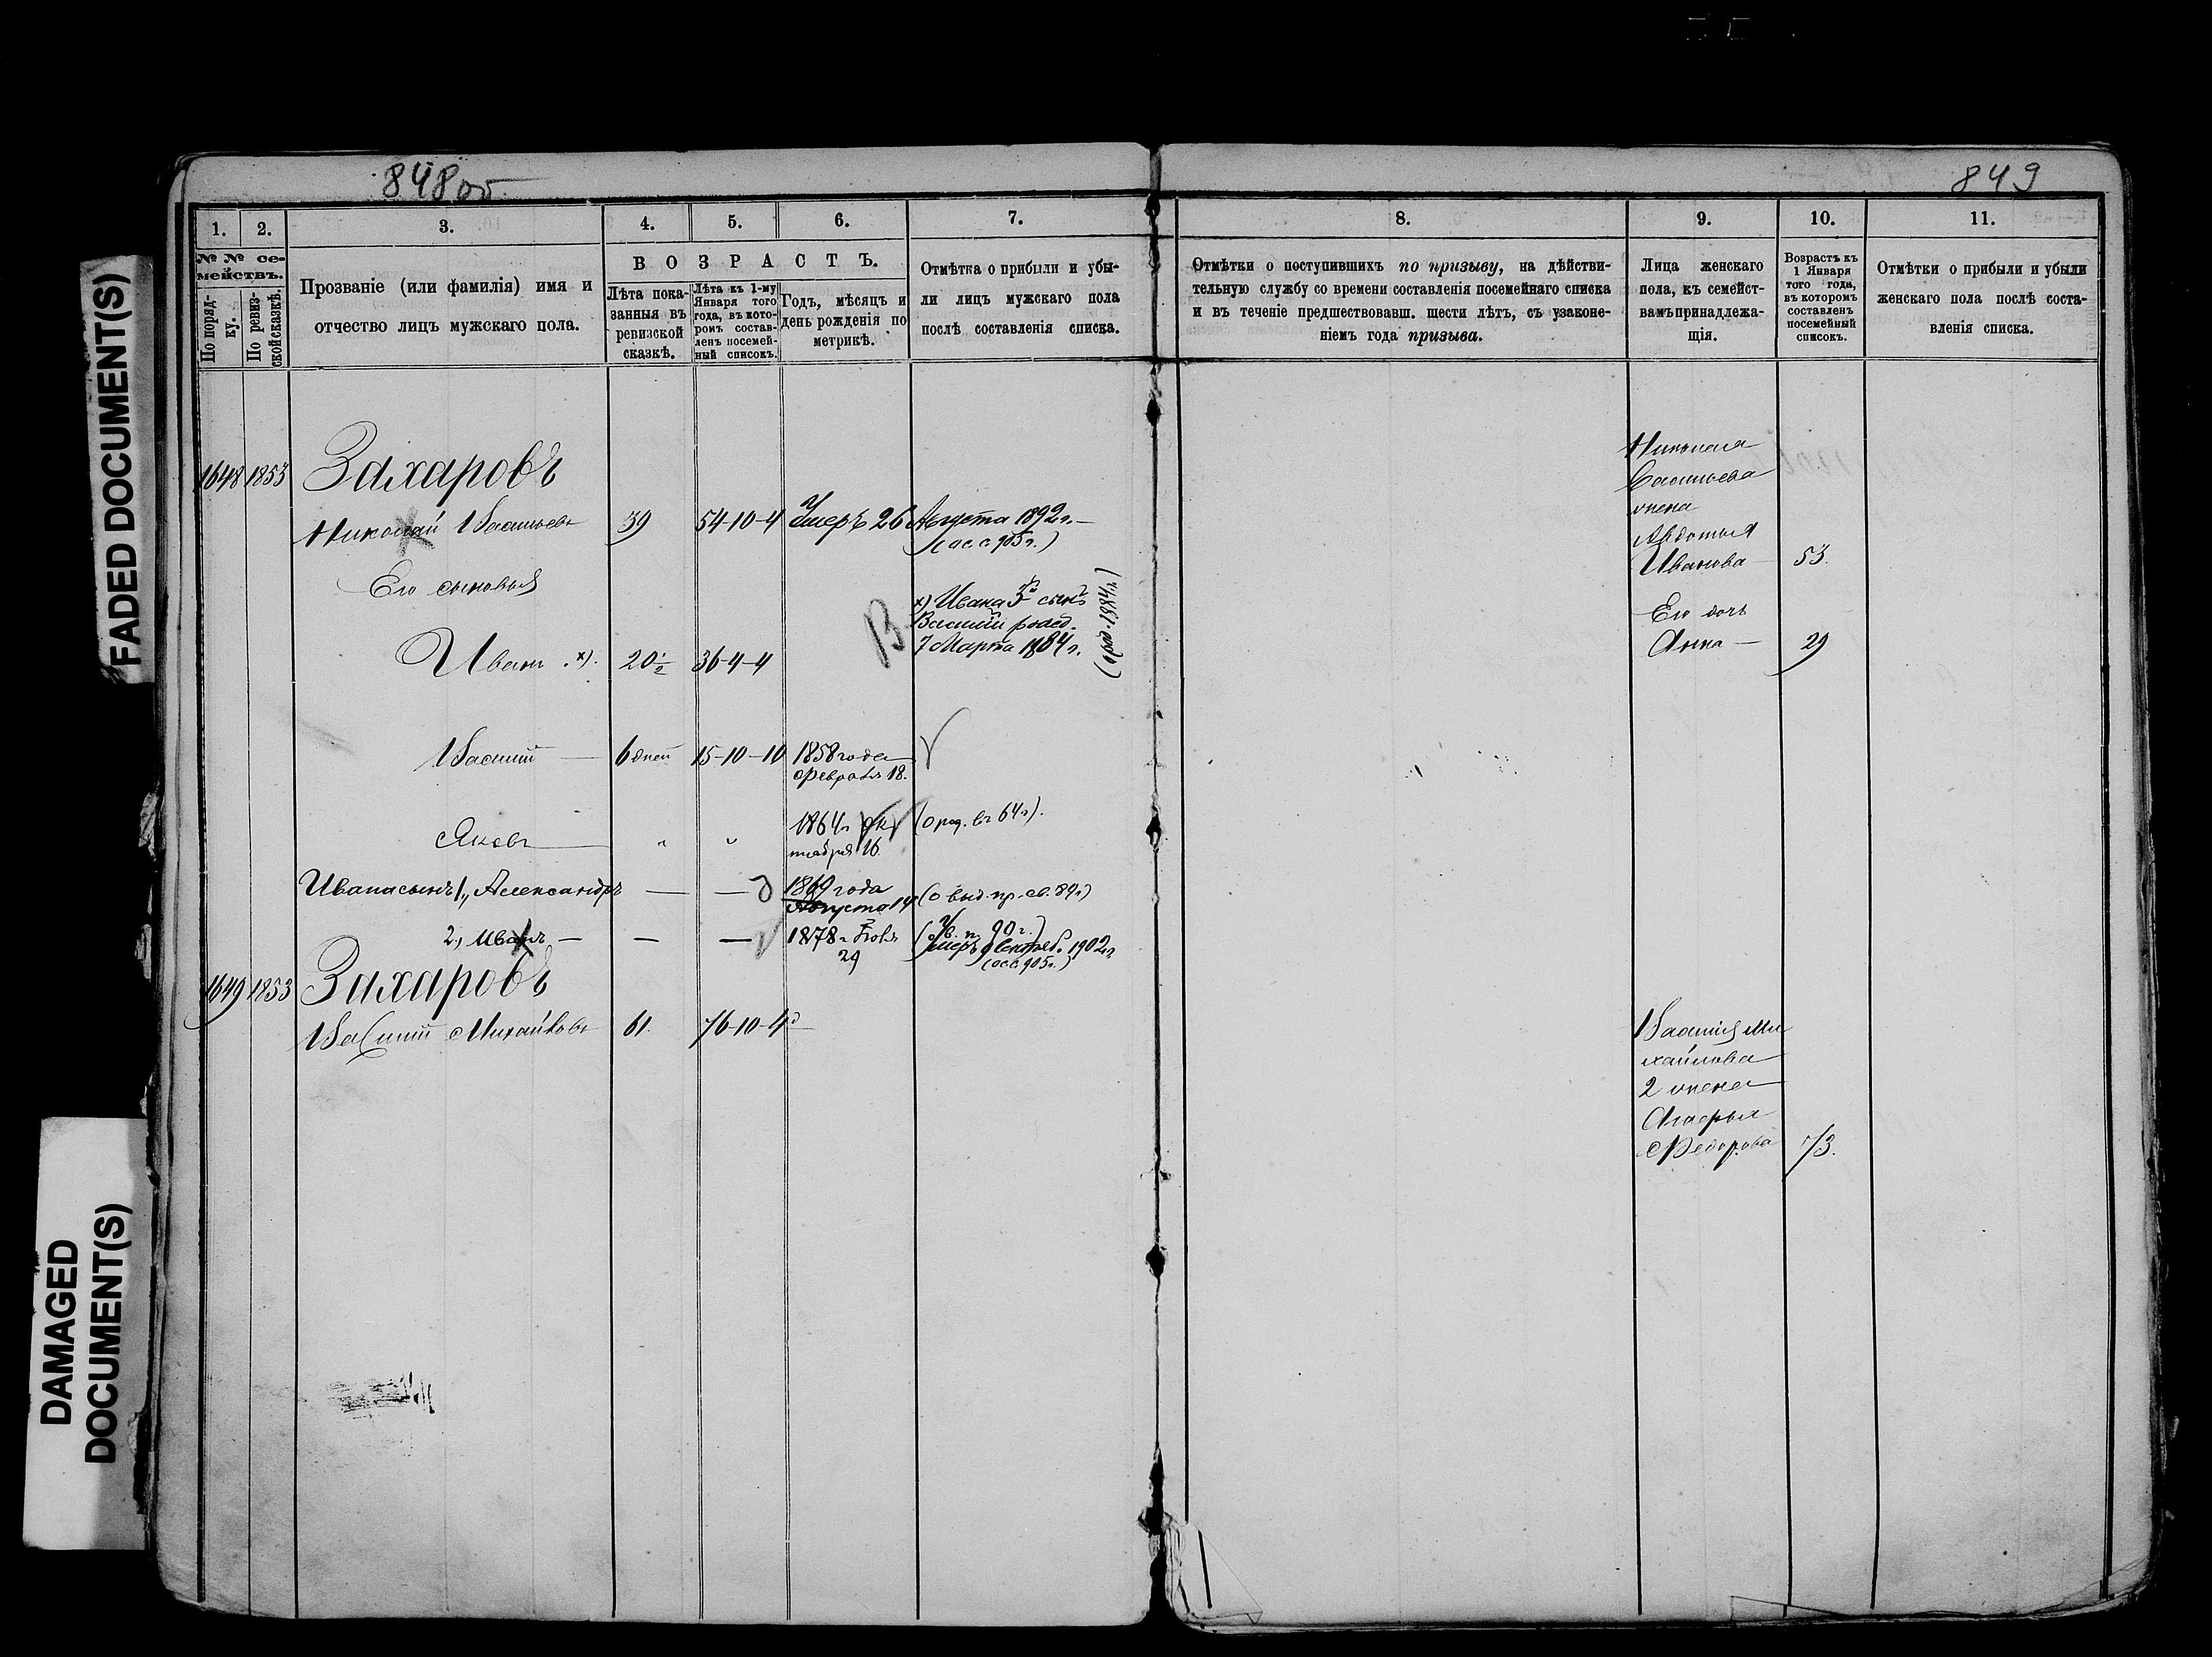 848об
849
FADED DOCUMENT(S)
DAMAGED DOCUMENT(S)
1.
2.
3.
4.
5.
6.
7.
8.
9.
10.
11.
№ № се-
мействъ.
По поряд-
ку.
По ревиз-
ской сказкѣ.
Прозваніе (или фамилія) имя и
отчество лицъ мужскаго пола.
ВОЗРАСТЪ.
Лѣта пока-
занныя въ
ревизской
сказкѣ.
Лѣта къ 1-му
Января того
года, въ кото-
ромъ состав-
ленъ посемей-
ный списокъ.
Годъ, мѣсяцъ и
день рожденія по
метрикѣ.
Отмѣтка о прибыли и убы-
ли лицъ мужскаго пола
послѣ составленія списка.
Отмѣтки о поступившихъ по призыву, на дѣйстви-
тельную службу со времени составленія посемейнаго списка
и въ теченіе предшествовавш. шести лѣтъ, съ узаконе-
ніемъ года призыва.
Лица женскаго
пола, къ семейст-
вамъ принадлежа-
щія.
Возрастъ къ
1 Января
того года,
въ которомъ
составленъ
посемейный
списокъ.
Отмѣтки о прибыли и убыли
женскаго пола послѣ соста-
вленія списка.
1648 1853 Захаровъ
Николай Васильевъ 39 54-10-4 Умеръ 26 Августа 1892 г. —
905 г.)
Его сыновья
Иванъ х). 20½ 36-4-4
х) Ивана 3й сынъ
Василій рожд.
7 Марта 1884 г.
Василій — 6 дней 15-10-10 1858 года
Февраля 18.
Яковъ — " " 1864 г. Ок
тября 16.
(о род. въ 64 г.).
Ивана сынъ 1., Александръ — — 1869 года
Августа 19
(о выд. пр. св. 89 г.)
2., Иванъ — — — 1878 г. Ноя
29
90 г.)
Умеръ 9 1902 г.
905 г.)
1649 1853 Захаровъ
Василій Михайловъ 61. 76-10-4
Николая
Васильева
жена
Авдотья
Иванова 53.
Его дочь
Анна — 29
Василія Ми
хайлова
2 жена
Агафья
Федорова 73.